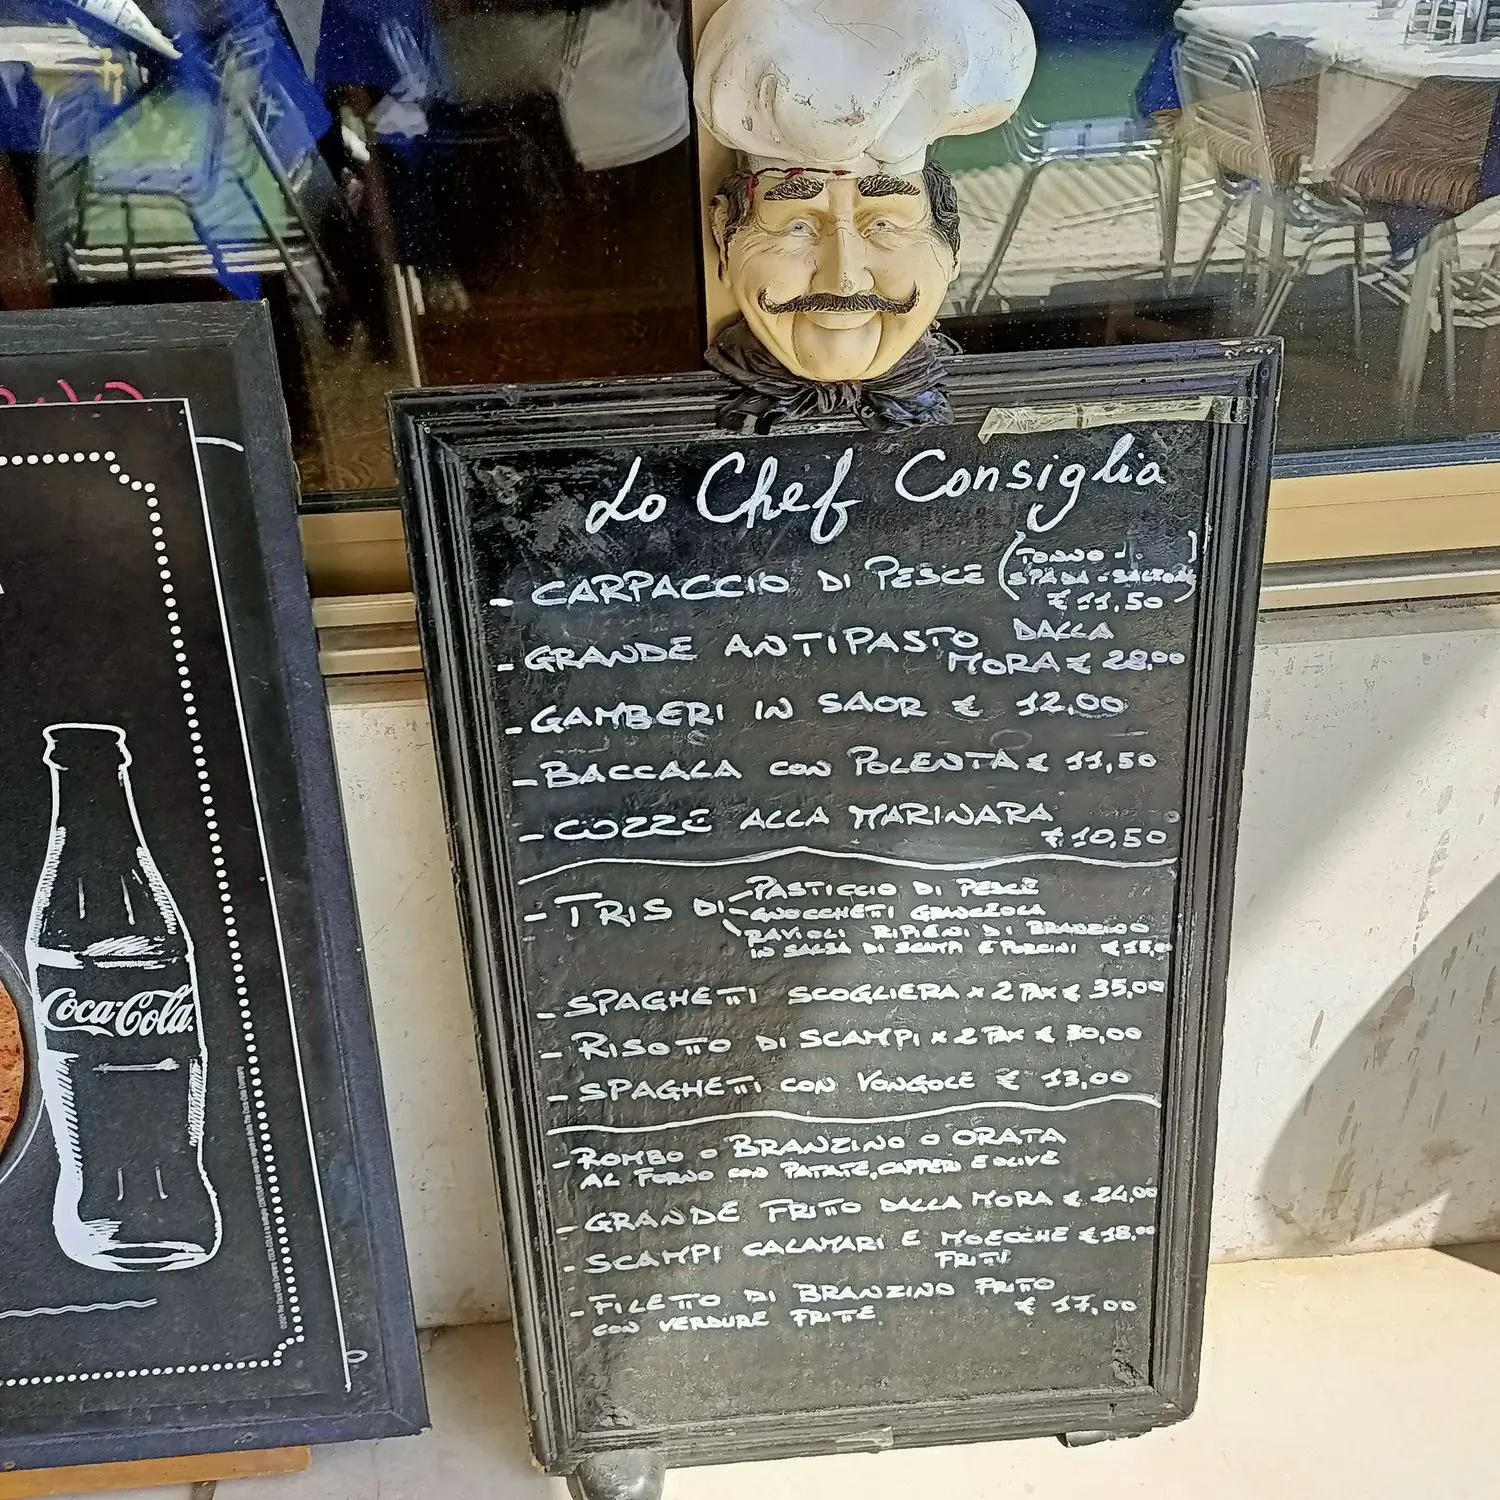 Lo Chef Consiglia
- CARPACCIO DI PESCE (TONNO
SPADA - SALMONE)
€ 11,50
- GRANDE ANTIPASTO DALLA
MORA € 28,00
- GAMBERI IN SAOR € 12,00
- BACCALA CON POLENTA € 11,50
- COZZE ALLA MARINARA
€ 10,50
- TRIS DI - PASTICCIO DI PESCE
- GNOCCHETTI GRANZEOLA
- RAVIOLI RIPIENI DI BRANZINO
IN SALSA DI SCAMPI E PORCINI € 15,00
- SPAGHETTI SCOGLIERA x 2 PAX € 35,00
- RISOTTO DI SCAMPI x 2 PAX € 30,00
- SPAGHETTI CON VONGOLE € 13,00
- ROMBO O BRANZINO O ORATA
AL FORNO CON PATATE, CAPPERI E OLIVE
- GRANDE FRITTO DALLA MORA € 24,00
- SCAMPI CALAMARI E MOECCHE € 18,00
FRITTI
- FILETTO DI BRANZINO FRITTO
CON VERDURE FRITTE € 17,00
Coca-Cola